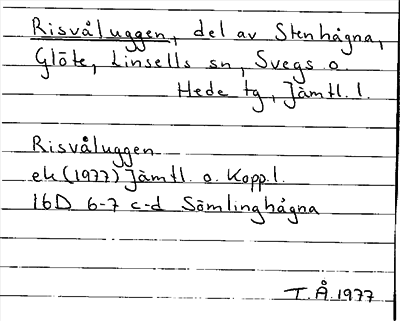 Risvåluggen, del av Stenhågna,
Glöte, Linsells sn, Svegs o.
Hede tg, Jämtl. l.
Risvåluggen
ek (1977) Jämtl. o. Kopp. l.
16D 6-7 c-d Sömlinghågna
T.Å. 1977